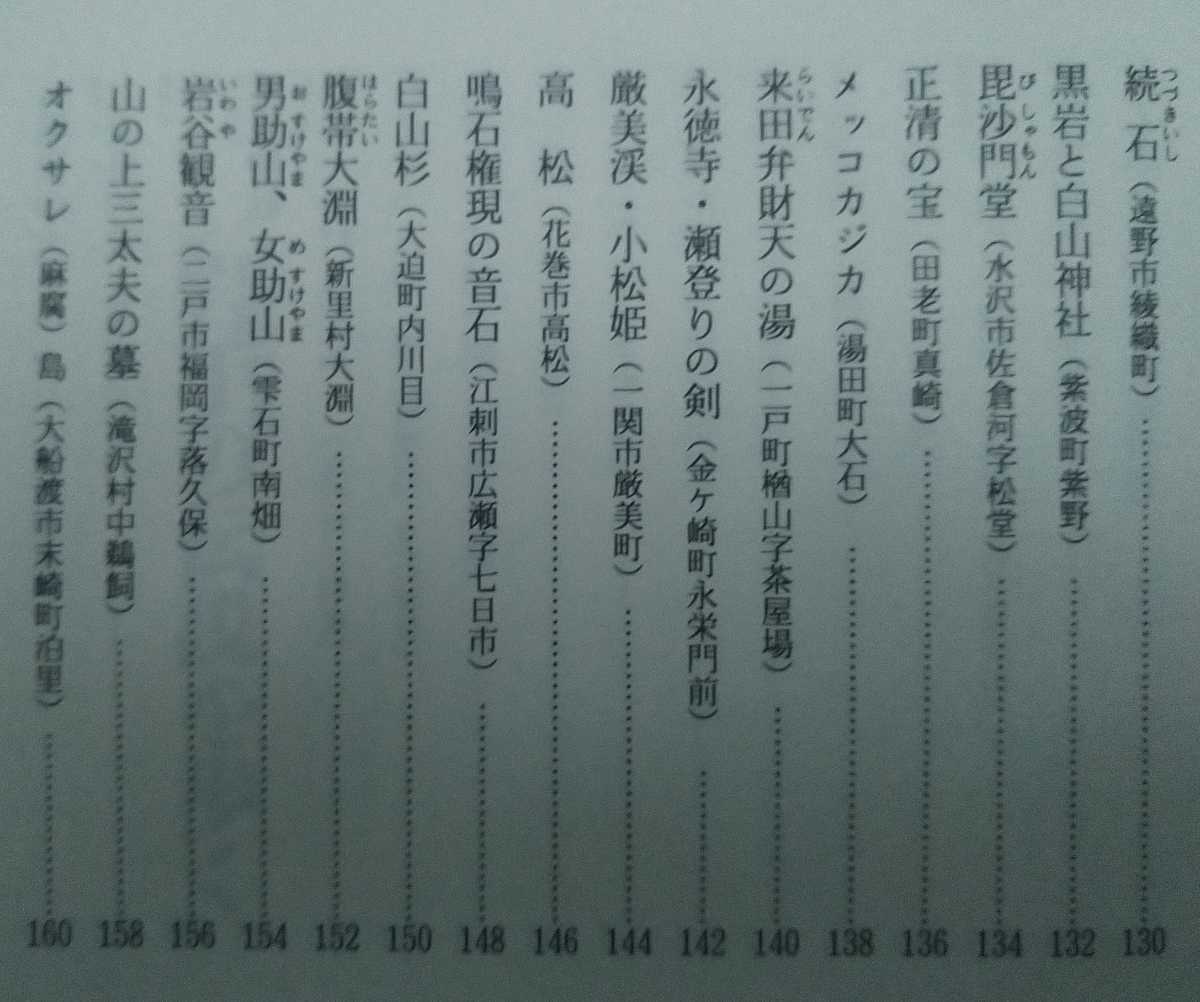 続石（遠野市綾織町）……130
黒岩と白山神社（紫波町紫野）……132
毘沙門堂（水沢市佐倉河字松堂）……134
正清の宝（田老町真崎）……136
メッコカジカ（湯田町大石）……138
来田弁財天の湯（一戸町楢山字茶屋場）……140
永徳寺・瀬登りの剣（金ヶ崎町永栄門前）……142
厳美渓・小松姫（一関市厳美町）……144
高　松（花巻市高松）……146
鳴石権現の音石（江刺市広瀬字七日市）……148
白山杉（大迫町内川目）……150
腹帯大淵（新里村大淵）……152
男助山、女助山（雫石町南畑）……154
岩谷観音（二戸市福岡字落久保）……156
山の上三太夫の墓（滝沢村中鵜飼）……158
オクサレ（麻腐）島（大船渡市末崎町泊里）……160